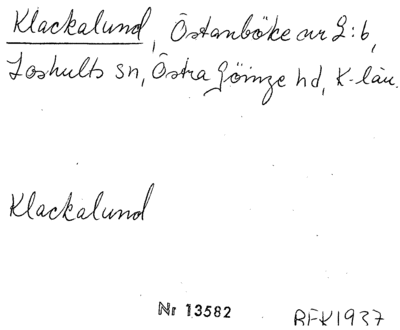 Klackalund, Östanböke nr 2:6,
Loshults sn, Östra Göinge hd, K-län.
Klackalund
Nr 13582 BEK1937